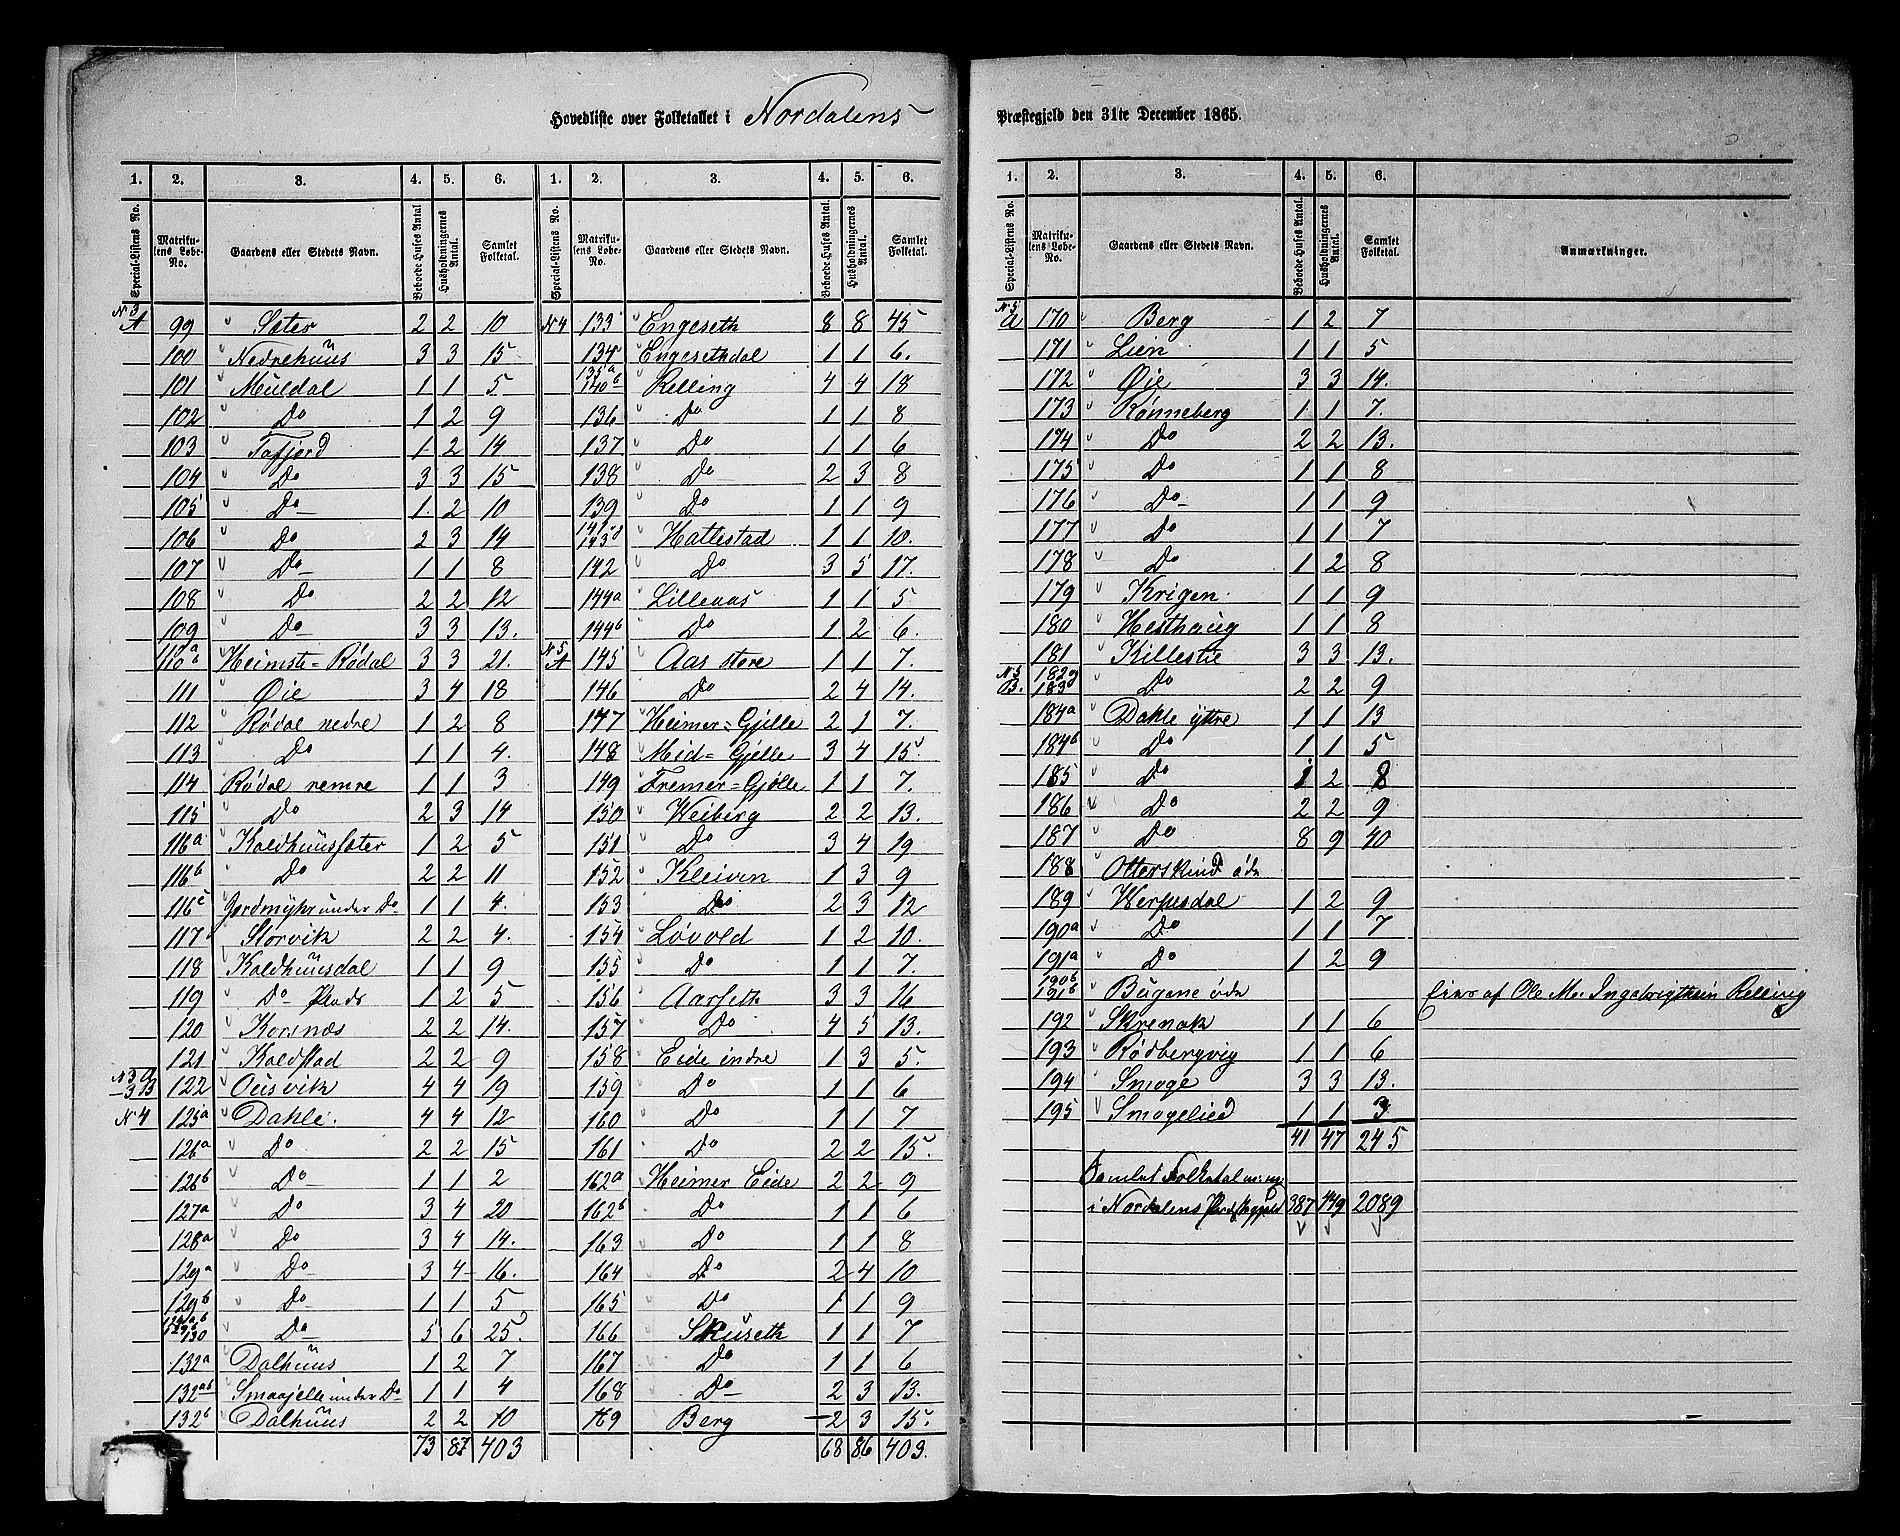 Hovedliste over Folketallet i Nordalens Præstegjeld den 31te December 1865.
1. 2. 3. 4. 5. 6. 1. 2. 3. 4. 5. 6.
Special-Listens No. Matrikulens Løbe-No. Gaardens eller Stedets Navn. Beboede Huses Antal. Husholdningernes Antal. Samlet Folketal. Special-Listens No. Matrikulens Løbe-No. Gaardens eller Stedets Navn. Beboede Huses Antal. Husholdningernes Antal. Samlet Folketal.
N 3 A 99 Sæter 2 2 10
100 Nedrehuus 3 3 15
101 Muldal 1 1 5
102 Do 1 2 9
103 Tafjord 1 2 14
104 Do 3 3 15
105 Do 1 2 10
106 Do 2 3 14
107 Do 1 1 8
108 Do 2 2 12
109 Do 3 3 13.
110 a b Heimste=Rødal 3 3 21.
111 Øie 3 4 18
112 Rødal nedre 1 2 8
113 Do 1 1 4.
114 Rødal remre 1 1 3
115 Do 2 3 14
116a Koldhuussæter 1 2 5
116b Do 2 2 11
116c Jordmyhr under Do 1 1 4.
117 Storvik 2 2 4.
118 Koldhuusdal 1 1 9
119 Do Plads 1 2 5
120 Korsnæs 2 2 14.
121 Koldstad 2 2 9
122 4 4 19
N 4 125a Dahle. 4 4 12
126a Do 2 2 15
126b Do 1 1 2
127a Do 3 4 20
128a Do 3 4 14.
129a Do 3 4 16.
129b Do 1 1 5
130 Do 5 6 25
132a Dalhuus 1 2 7
132ab Smaajelle under Do 1 1 4
132b Dalhuus 2 2 10
73 87 403
N 4 133 Engeseth 8 8 45
134 Engesethdal 1 1 6.
135a 140b Relling 4 4 18
136 Do 1 1 8
137 Do 1 1 6
138 Do 2 3 8
139 Do 1 1 9
141 og 143 Hattestad 1 1 10.
142 Do 3 5 17.
144a Lilleaas 1 1 5
144b Do 1 2 6.
N 5 A 145 Aas store 1 1 7.
146 Do 2 4 14.
147 Heimer=Gjelle 2 1 7.
148 Mid=Gjelle 3 4 15
149 Fremer=Gjelle 1 1 7.
150 Weiberg 2 2 13.
151 Do 3 4 19
152 Kleiven 1 3 9
153 Do 2 3 12
154 Løvold 1 2 10.
155 Do 1 1 7.
156 Aarseth 3 3 16
157 Do 4 5 13.
158 Eide indre 1 3 5.
159 Do 1 1 6
160 Do 1 1 7
161 Do 2 2 15
162a Heimer Eide 2 2 9
162b Do 1 1 6
163 Do 1 1 8
164 Do 2 4 10
165 Do 1 1 9
166 Skuseth 1 1 7
167 Do 1 1 6
168 Do 2 3 13.
169 Berg 2 3 15.
68 86 403.
1. 2. 3. 4. 5. 6.
Special-Listens No. Matrikulens Løbe-No. Gaardens eller Stedets Navn. Beboede Huses Antal. Husholdningernes Antal. Samlet Folketal. Anmærkninger.
N 5 a 170 Berg 1 2 7
171 Lien 1 1 5
172 Øie 3 3 14.
173 Rønneberg 1 1 7.
174 Do 2 2 13.
175 Do 1 1 8
176 Do 1 1 9
177 Do 1 1 7
178 Do 1 2 8
179 Krigen 1 1 9
180 Hesthaug 1 1 8
181 Killestie 3 3 13.
N 5 B. 182 og 183 Do 2 2 9
184a Dahle yttre 1 1 13
184b Do 1 1 5
185 Do 1 2 8
186 Do 2 2 9
187 Do 8 9 40
188 Otterskind øde
189 Werpesdal 1 2 9
190a Do 1 1 7
191a Do 1 2 9
190b 191b Bugene øde Eies af Ole M. Relling
192 Skrenak 1 1 6
193 Rødbergvig 1 1 6
194 Smoge 3 3 13.
195 Smogelied 1 1 3
41 47 245
Samlet Folketal
i Nordalens Præstegjeld 387 449 2089